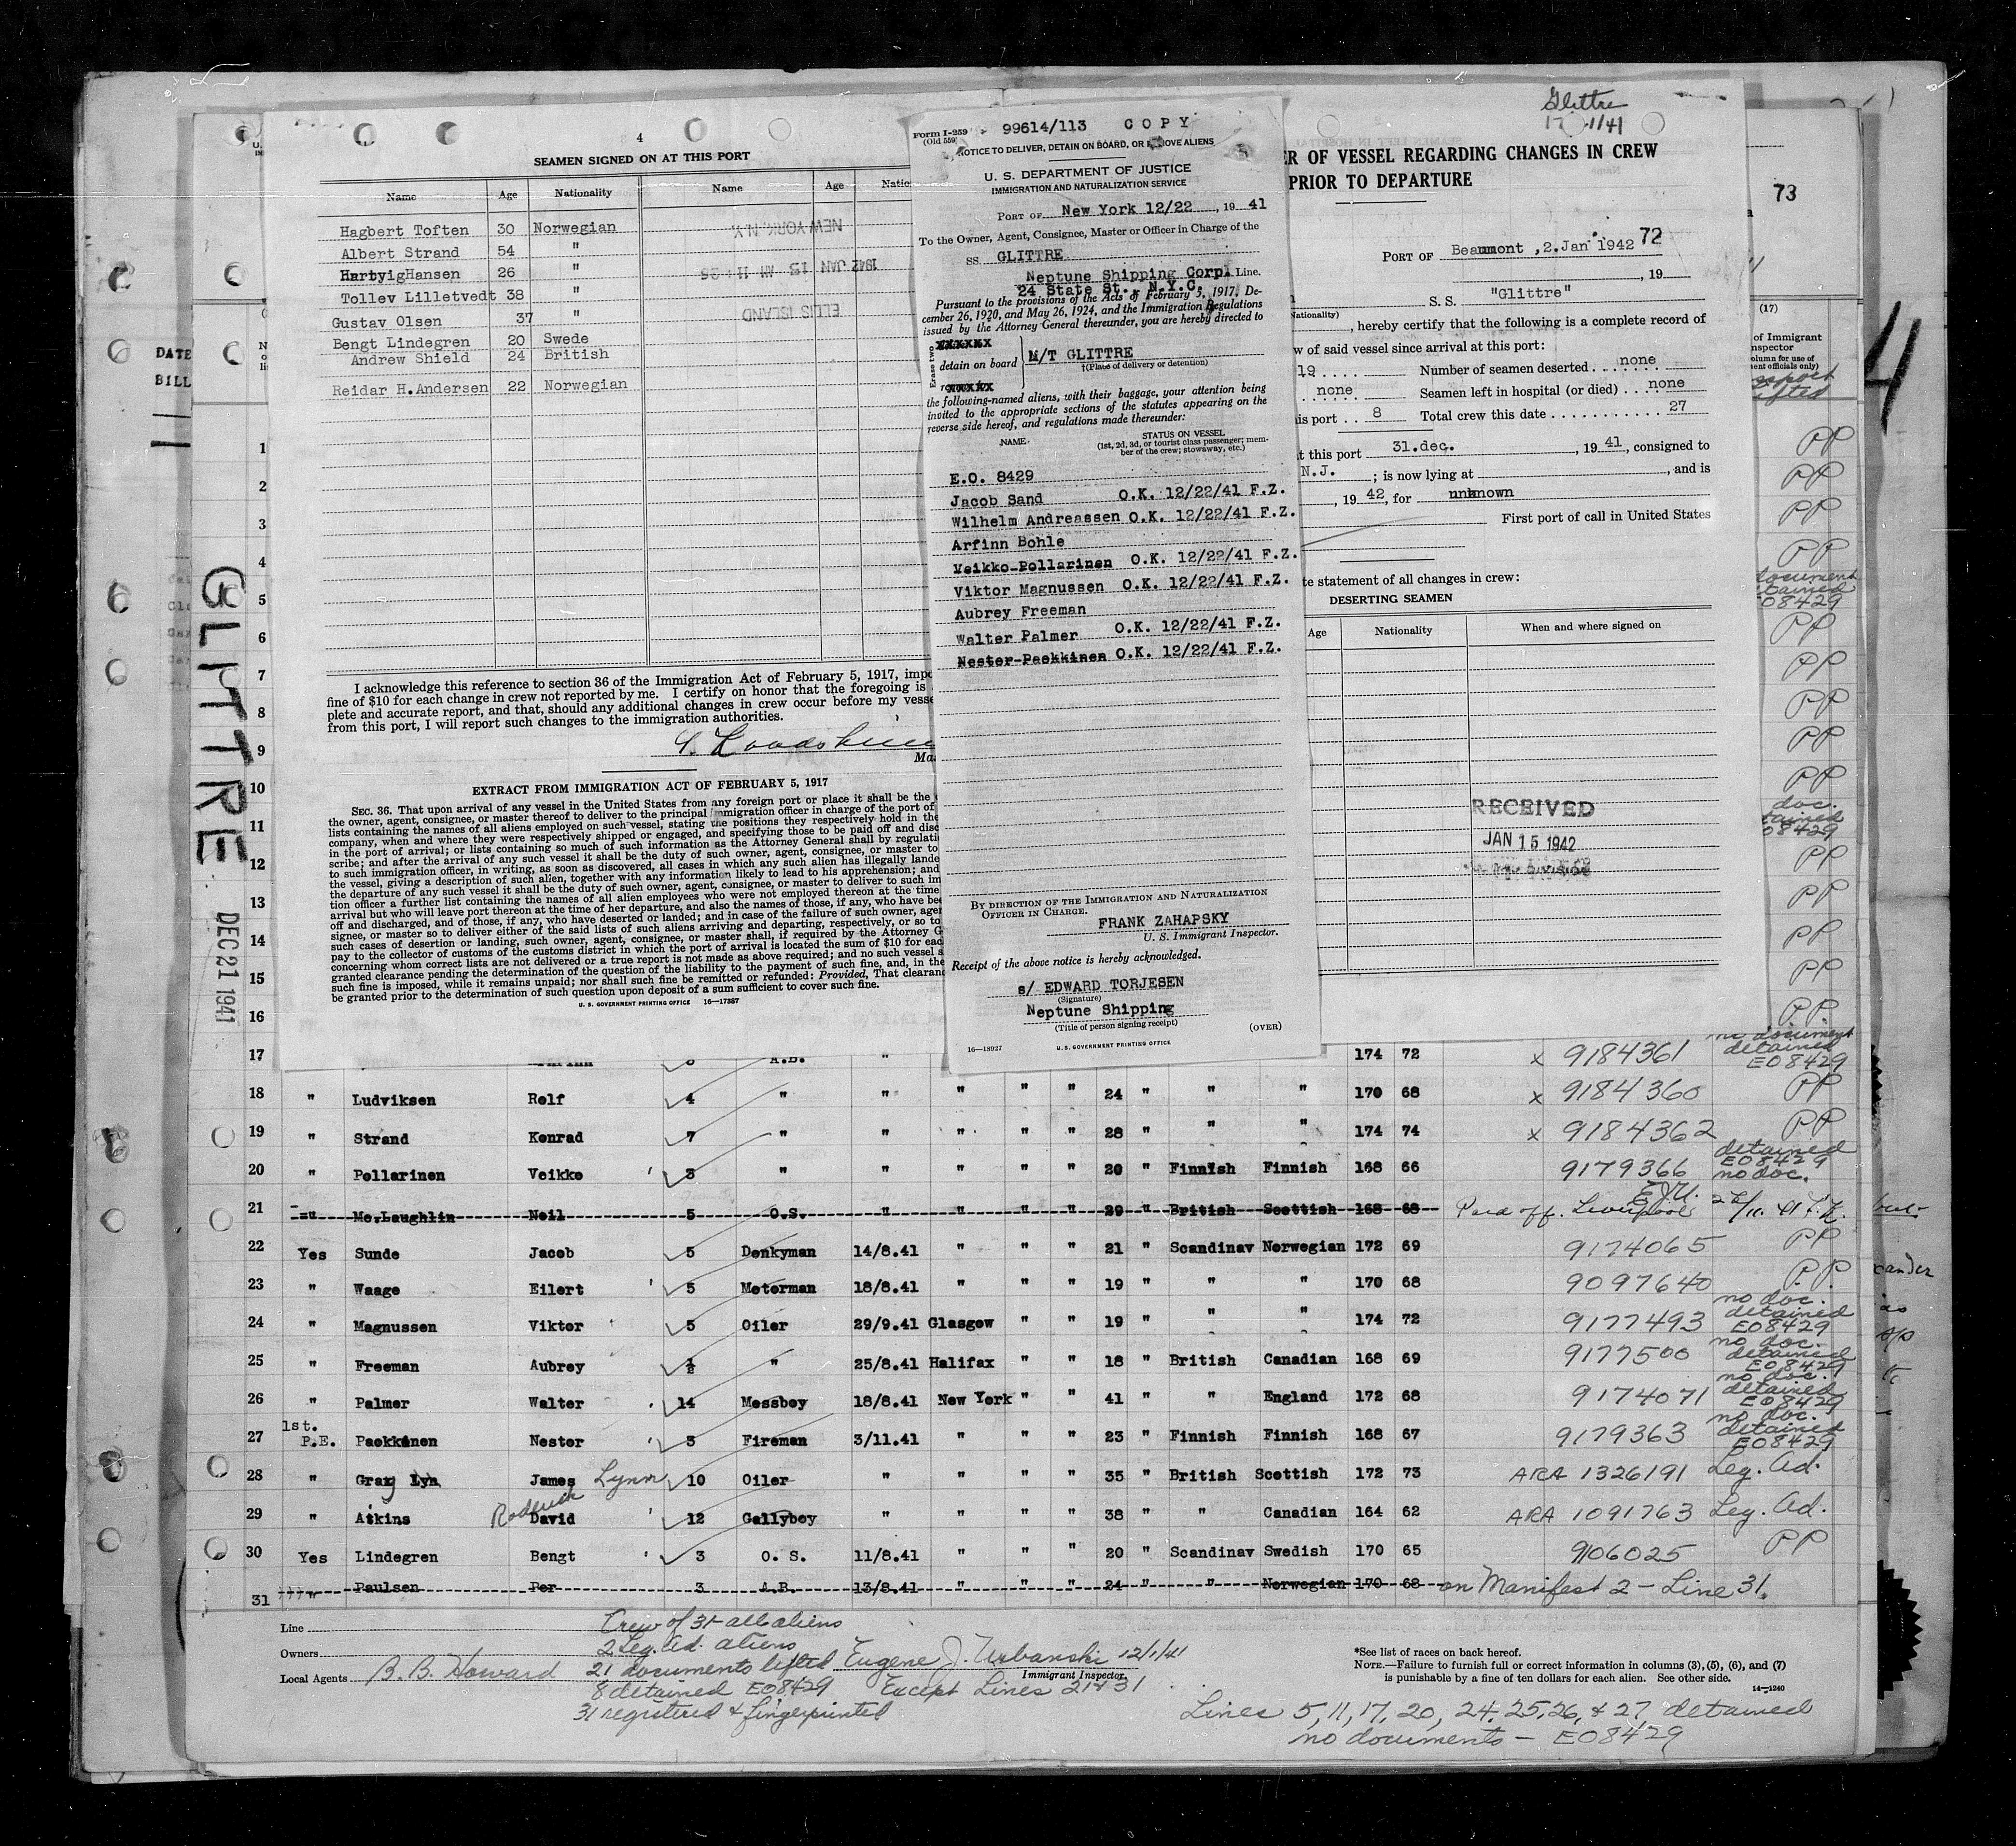 4
SEAMEN SIGNED ON AT THIS PORT
Name Age Nationality Name Age
Hagbert Toften 30 Norwegian
Albert Strand 54 "
Hansen 26 "
Tollev Lilletvedt 38 "
Gustav Olsen 37 "
Bengt Lindegren 20 Swede
Andrew Shield 24 British
Reidar H.Andersen 22 Norwegian
NEW YORK, N.Y.
1942 JAN 15 AM 11 36
ELLIS ISLAND
I acknowledge this reference to section 36 of the Immigration Act of February 5, 1917,
fine of $10 for each change in crew not reported by me. I certify on honor that the foregoing is
plete and accurate report, and that, should any additional changes in crew occur before my
from this port, I will report such changes to the immigration authorities.
EXTRACT FROM IMMIGRATION ACT OF FEBRUARY 5, 1917
SEC. 36. That upon arrival of any vessel in the United States from any foreign port or place it shall be the
the owner, agent, consignee, or master thereof to deliver to the principal immigration officer in charge of the port of
lists containing the names of all aliens employed on such vessel, stating the positions they respectively hold in the
company, when and where they were respectively shipped or engaged, and specifying those to be paid off and
in the port of arrival; or lists containing so much of such information as the Attorney General shall by
scribe; and after the arrival of any such vessel it shall be the duty of such owner, agent, consignee, or master to
to such immigration officer, in writing, as soon as discovered, all cases in which any such alien has illegally
the vessel, giving a description of such alien, together with any information likely to lead to his apprehension; and
the departure of any such vessel it shall be the duty of such owner, agent, consignee, or master to deliver to such
tion officer a further list containing the names of all alien employees who were not employed thereon at the time
arrival but who will leave port thereon at the time of her departure, and also the names of those, if any, who have
off and discharged, and of those, if any, who have deserted or landed; and in case of the failure of such owner,
signee, or master so to deliver either of the said lists of such aliens arriving and departing, respectively, or so to
such cases of desertion or landing, such owner, agent, consignee, or master shall, if required by the Attorney
pay to the collector of customs of the customs district in which the port of arrival is located the sum of $10 for
concerning whom correct lists are not delivered or a true report is not made as above required; and no such vessel
granted clearance pending the determination of the question of the liability to the payment of such fine, and, in the
such fine is imposed, while it remains unpaid; nor shall such fine be remitted or refunded: Provided, That
be granted prior to the determination of such question upon deposit of a sum sufficient to cover such fine.
U. S. GOVERNMENT PRINTING OFFICE 16—17387
Form I-259
(Old 559)
99614/113 COPY
NOTICE TO DELIVER, DETAIN ON BOARD, OR REMOVE ALIENS
U. S. DEPARTMENT OF JUSTICE
IMMIGRATION AND NATURALIZATION SERVICE
PORT OF New York 12/22, 19 41
To the Owner, Agent, Consignee, Master or Officer in Charge of the
SS GLITTRE
Neptune Shipping Corp. Line.
24 State St., N.Y.C.
Pursuant to the provisions of the Acts of February 5, 1917, De-
cember 26, 1920, and May 26, 1924, and the Immigration Regulations
issued by the Attorney General thereunder, you are hereby directed to
Erase two
xxxxxx
detain on board M/T GLITTRE
†(Place of delivery or detention)
the following-named aliens, with their baggage, your attention being
invited to the appropriate sections of the statutes appearing on the
reverse side hereof, and regulations made thereunder:
NAME STATUS ON VESSEL
(1st, 2d, 3d, or tourist class passenger; mem-
ber of the crew; stowaway, etc.)
E.O. 8429
Jacob Sand O.K. 12/22/41 F.Z.
Wilhelm Andreassen O.K. 12/22/41 F.Z.
Arfinn Bohle
Veikko Pollarinen O.K. 12/22/41 F.Z.
Viktor Magnussen O.K. 12/22/41 F.Z.
Aubrey Freeman
Walter Palmer O.K. 12/22/41 F.Z.
Nester Paekkinen O.K. 12/22/41 F.Z.
BY DIRECTION OF THE IMMIGRATION AND NATURALIZATION
OFFICER IN CHARGE.
FRANK ZAHAPSKY
U. S. Immigrant Inspector.
Receipt of the above notice is hereby acknowledged.
s/ EDWARD TORJESEN
(Signature)
Neptune Shipping
(Title of person signing receipt)
(OVER)
16—18927 U. S. GOVERNMENT PRINTING OFFICE
Glittre
OF VESSEL REGARDING CHANGES IN CREW
PRIOR TO DEPARTURE
72
PORT OF Beaumont, 2.Jan 1942
, 19
S. S. "Glittre"
, hereby certify that the following is a complete record of
of said vessel since arrival at this port:
19 Number of seamen deserted none
none Seamen left in hospital (or died) none
port 8 Total crew this date 27
this port 31.dec. , 19 41, consigned to
N.J. ; is now lying at , and is
, 19 42, for unknown
First port of call in United States
statement of all changes in crew:
DESERTING SEAMEN
Age Nationality When and where signed on
RECEIVED
JAN 15 1942
73
(17)
of Immigrant
DATE
BILL
GLITTRE
DEC 21 1941
4
1
2
3
4
5
6
7
8
9
10
11
12
13
14
15
16
PP
PP
PP
PP
PP
PP
PP
PP
PP
PP
PP
PP
PP
PP
17 A.B. " 174 72 x 9184361 no document detained E08429
18 " Ludviksen Rolf 4 " " " " " 24 " " " 170 68 x 9184360 PP
19 " Strand Konrad 7 " " " " " 28 " " " 174 74 x 9184362 PP
20 " Pollarinen Veikko 3 " " " " " 20 " Finnish Finnish 168 66 9179366 detained E08429 no doc.
21 " McLaughlin Neil 5 O.S. " " " " 29 " British Scottish 168 68 Paid off. Liverpool E.J.U.
22 Yes Sunde Jacob 5 Donkyman 14/8.41 " " " 21 " Scandinav Norwegian 172 69 9174065 PP
23 " Waage Eilert 5 Motorman 18/8.41 " " " 19 " " " 170 68 9097640 P.P.
24 " Magnussen Viktor 5 Oiler 29/9.41 Glasgow " " 19 " " " 174 72 9177493 no doc. detained E08429
25 " Freeman Aubrey ½ " 25/8.41 Halifax " " 18 " British Canadian 168 69 9177500 no doc. detained E08429
26 " Palmer Walter 14 Messboy 18/8.41 New York " " 41 " " England 172 68 9174071 no doc. detained E08429
27 1st. P.E. Paekkinen Nester 3 Fireman 3/11.41 " " " 23 " Finnish Finnish 168 67 9179363 no doc. detained E08429
28 " Gray Lyn James Lynn 10 Oiler " " " " 35 " British Scottish 172 73 ARA 1326191 Leg. Ad.
29 " Atkins Roderick David 12 Gallyboy " " " " 38 " " Canadian 164 62 ARA 1091763 Leg. Ad.
30 Yes Lindegren Bengt 3 O. S. 11/8.41 " " " 20 " Scandinav Swedish 170 65 9106025 PP
31 " Paulsen Per 3 A.B. 13/8.41 " " " 24 " " Norwegian 170 68 on Manifest 2 - Line 31.
Line
Owners
Local Agents B. B. Howard
Crew of 31 all aliens
2 Leg. Ad. aliens
21 documents lifted
8 detained E08429
31 registered & fingerprinted
Eugene J. Urbanski 12/1/41
Immigrant Inspector
Except Lines 21 & 31
*See list of races on back hereof.
NOTE.—Failure to furnish full or correct information in columns (3), (5), (6), and (7)
is punishable by a fine of ten dollars for each alien. See other side.
14—1240
Lines 5, 11, 17, 20, 24, 25, 26, & 27, detained
no documents - E08429